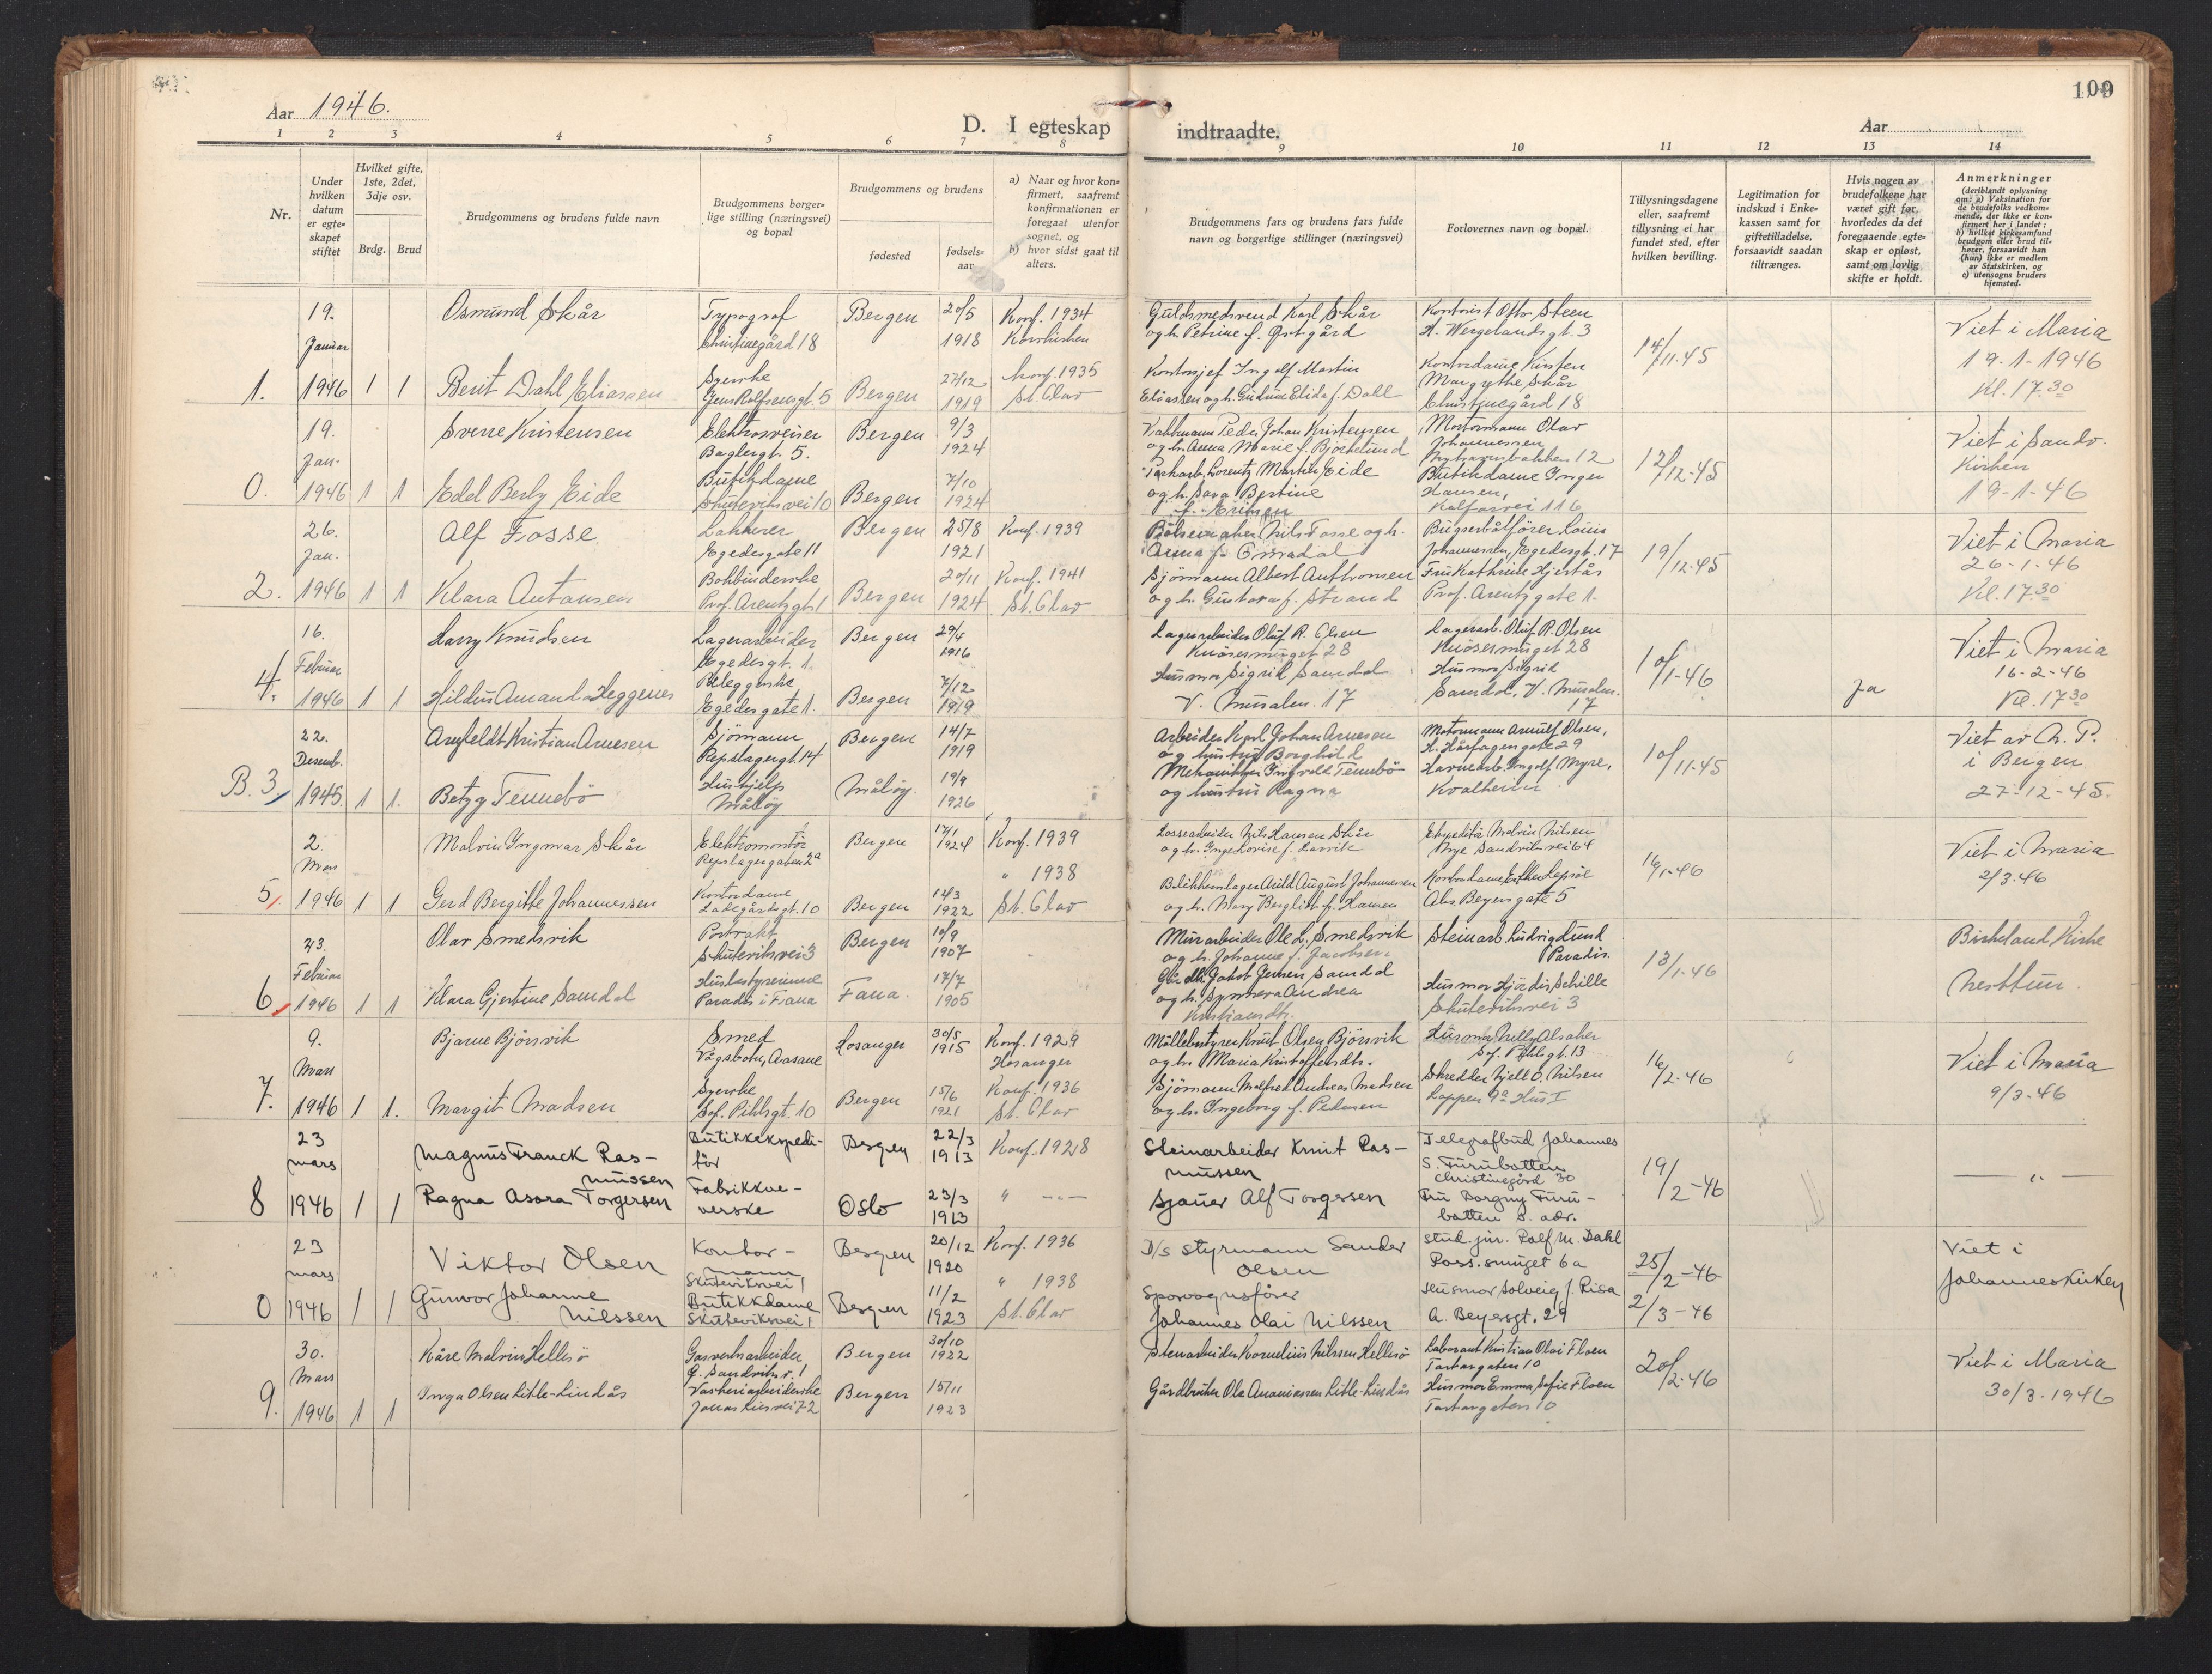 109
Aar 1946.
D. I egteskap indtraadte.
Aar
1 2 3 4 5 6 7 8 9 10 11 12 13 14
Nr.
Under hvilken datum er egteskapet stiftet
Hvilket gifte, 1ste, 2det, 3dje osv.
Brdg. Brud
Brudgommens og brudens fulde navn
Brudgommens borgerlige stilling (næringsvei) og bopæl
Brudgommens og brudens
fødested
fødselsaar
a) Naar og hvor konfirmert, saafremt konfirmationen er foregaat utenfor sognet, og
b) hvor sidst gaat til alters.
Brudgommens fars og brudens fars fulde navn og borgerlige stillinger (næringsvei)
Forlovernes navn og bopæl.
Tillysningsdagene eller, saafremt tillysning ei har fundet sted, efter hvilken bevilling.
Legitimation for indskud i Enkekassen samt for giftetilladelse, forsaavidt saadan tiltrænges.
Hvis nogen av brudefolkene har været gift før, hvorledes da det foregaaende egteskap er opløst, samt om lovlig skifte er holdt.
Anmerkninger
(deriblandt oplysning om: a) Vaksination for de brudefolks vedkommende, der ikke er konfirmert her i landet; b) hvilket kirkesamfund brudgom eller brud tilhører, forsaavidt han (hun) ikke er medlem av Statskirken, og c) utensogns bruders hjemsted.
1. 19. Januar 1946 1 1
Osmund Skår Typograf Christinegård 18 Bergen 20/5 1918 Konf. 1934 Korskirken
Guldsmedsvend Karl Skår og h. Petrine f. Østgård
Kontorist Otto Steen H. Wergelandsgt. 3
14/11.45
Viet i Maria 19-1-1946 Kl. 17.30
Berit Dahl Eliassen Syerske Jens Rolfsensgt. 5 Bergen 27/12 1919 Konf. 1935 St. Olav
Kontorsjef Ingolf Martin Eliassen og h. Gudrun Elida f. Dahl
Kontordame Kirsten Margrethe Skår Christinegård 18
0. 19. Jan. 1946 1 1
Sverre Kristensen Elektrosveiser Baglergt. 5. Bergen 9/3 1924
Peder Johan Kristensen og h. Anna Marie f. Bjørkelund
Motormann Olav Johannessen 12
12/12-45
Viet i Sandv. Kirken 19-1-46
Edel Berly Eide Butikdame Skuteviksvei 10 Bergen 7/10 1924
Parkarb. Lorentz Martin Eide og h. Sara Bertine f. Eriksen
Butikdame Inger Hansen, Kalfarvei 116
2. 26. Jan. 1946 1 1
Alf Fosse Lakkerer Egedesgate 11 Bergen 25/8 1921 Konf. 1939
Nils Fosse og h. Anna f.
Bugserbåtfører Louis Johannessen, Egedesgt. 17
19/12.45
Viet i Maria 26-1-46 Kl. 17.30
Klara Antonsen Bokbinderske Prof. Arentzgt. 1 Bergen 20/11 1924 Konf. 1941 St. Olav
Sjömann Albert Anthonsen og h. Gustava f. Strand
Fru Kathrine Hjertås Prof. Arentzgate 1.
4. 16. Februar 1946 1 1
Harry Knudsen Lagerarbeider Egedesgt. 1. Bergen 29/4 1916
Lagerarbeider Oluf R. Olsen Knösesmuget 28
Lagerarb. Oluf R. Olsen Knösesmuget 28
10/1-46
Ja
Viet i Maria 16-2-46 Kl. 17.30
Hildur Amanda Heggenes Beleggerske Egedesgate 1. Bergen 7/12 1919
Husmor Sigrid Samdal V. Murialm. 17
Husmor Sigrid Samdal, V. Murialm. 17
B. 3. 22. Desemb. 1945. 1 1.
Arnfeldt Kristian Arnesen Sjömann Repslagergt. 14 Bergen 14/7 1919
Arbeider Karl Johan Arnesen og hustru Borghild
Motormann Arnulf Olsen, H. Hårfagersgate 29
10/11.45
Viet av A. P. i Bergen 27-12-45.
Betzy Tennebö Hushjelp Måløy Måløy. 19/9 1926
Mekaniker Ingvald Tennebö og hustru Ragna
Havnearb. Ingolf Myre, Kvalheim
5. 2. Mars 1946 1 1
Malvin Ingmar Skår Elektromontör Repslagergaten 2a Bergen 17/1 1924 Konf. 1939
Lossearbeider Nils Hansen Skår og h. Inga Lovise f. Larvik
Ekspeditør Malvin Nilsen Nye Sandviksvei 64
16/1-46
Viet i Maria 2/3.46
Gerd Bergithe Johannessen Kontordame Ladegårdsgt. 10 Bergen 12/3 1922 " 1938 St. Olav
Blikkenslager Arild August Johannessen og h. Mary Bergliot f. Hansen
Kontordame Esther Lepsöe Abs. Beyersgate 5
6. 23. Februar 1946 1 1
Olav Smedsvik Skuteviksvei 3 Bergen 10/9 1907
Murarbeider Ole L. Smedsvik og h. Johanne f. Jacobsen
Steinarb. Ludvig Lund Paradis.
13/1-46
Birkeland Kirke Nesttun.
Klara Gjertine Samdal Husbestyrerinne Paradis i Fana Fana. 17/7 1905
Gårdbr. Jakob Jensen Samdal og h. Synneva Andrea Kristiansdtr.
Husmor Hjördis Schille Skuteviksvei 3
7. 9. Mars 1946 1 1.
Bjarne Björsvik Smed Vågsbotn, Aasane Hosanger 30/5 1915 Konf. 1929 Hosanger
Möllebestyrer Knut Olsen Björsvik og h. Maria Kristoffersdtr.
Husmor Nelly Alsaker Sof. Pihlsgt. 13
16/2.46
Viet i Maria 9/3-46
Margit Madsen Syerske Sof. Pihlsgt. 10 Bergen 15/6 1921 Konf. 1936 St. Olav
Sjömann Malfred Andreas Madsen og h. Ingeborg f. Pedersen
Skredder Kjell O. Nilsen Loppen 9a Hus I
8 23 mars 1946 1 1
Magnus Franck Rasmussen Butikkekspeditör Bergen 22/3 1913 Konf. 1928
Steinarbeider Knut Rasmussen
Telegrafbud Johannes S. Furubotten Christinegård 30
19/2-46
— " —
Ragna Asora Torgersen Fabrikkveverske Oslo 23/3 1913 " — " —
Sjauer Alf Torgersen
Fru Borgny Furubotten s. adr.
0 23 mars 1946 1 1
Viktor Olsen Kontormann Skuteviksvei 1 Bergen 20/12 1920 Konf. 1936
D/s styrmann Sander Olsen
stud. jur. Rolf M. Dahl Ross.smuget 6a
25/2-46
2/3-46
Viet i Johanneskirken
Gunvor Johanne Nilssen Butikkdame Skuteviksvei 1 Bergen 11/2 1923 " 1938 St. Olav
Sporvognsfører Johannes Olai Nilssen
Husmor Solveig J. Risa A. Beyersgt. 29
9. 30. Mars 1946 1 1
Kåre Malvin Hellesö Gasverksarbeider G. Sandviksv. 1 Bergen 30/10 1922
Stenarbeider Kornelius Nilssen Hellesö
Laborant Kristian Olai Floen Tartargaten 10
20/2.46
Viet i Maria 30/3-1946
Inga Olsen Litle-Lindås Vaskeriarbeiderske Jonas Liesvei 72 Bergen 15/11 1923
Gårdbruker Ole Ananiassen Litle-Lindås
Husmor Emma Sofie Floen Tartargaten 10